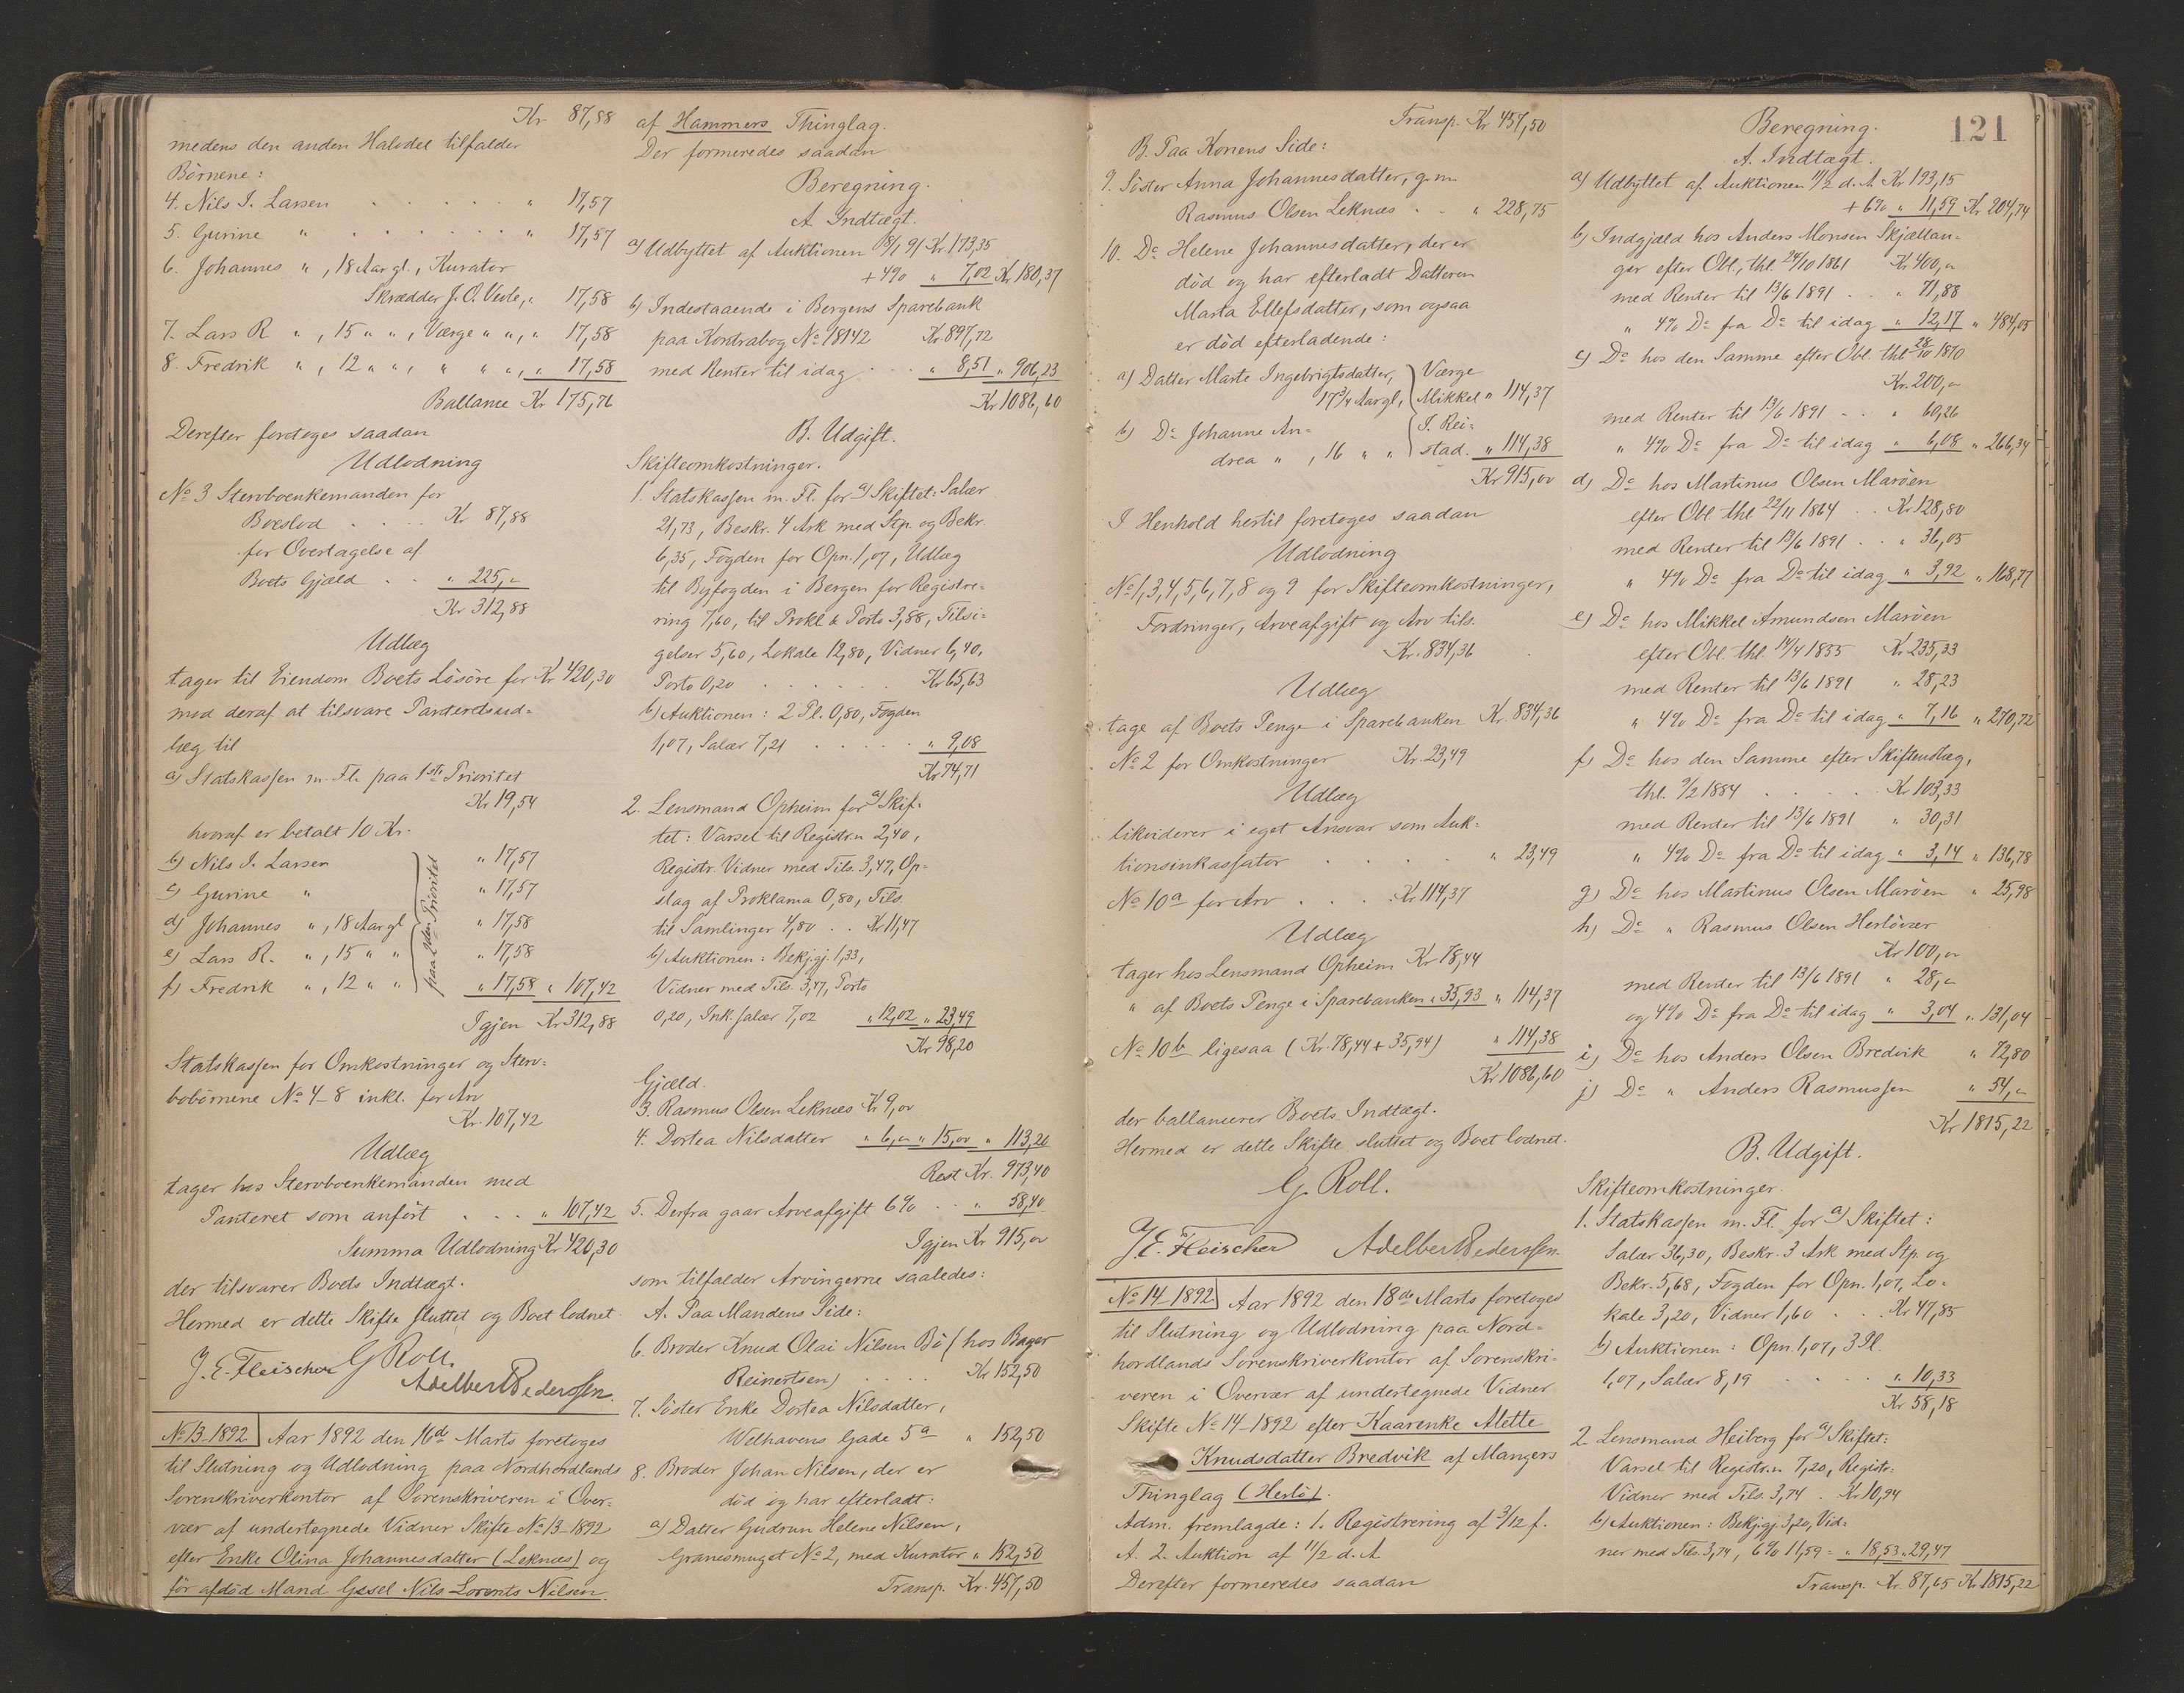 Kr 87,88
medens den anden Halvdel tilfalder
Börnene:
4. Nils I. Larsen . . . . " 17,57
5. Gurine " . . . . " 17,57
6. Johannes ", 18 Aar gl., Kurator
Skrædder J. O. Veele, " 17,58
7. Lars R. ", 15 " ", Værge " ", " 17,58
8. Fredrik ", 12 " ", " " ", " 17,58
Ballance Kr 175,76
Derefter foretoges saadan
Udlodning
No 3 Stervboenkemanden for
Boeslod . . . . Kr 87,88
for Overtagelse af
Boets Gjæld . . " 225,"
Kr 312,88
Udlæg
tager til Eiendom Boets Lösöre for Kr 420,30
mod deraf at tilsvare Panteretsud-
læg til
a) Statskassen m. Fl. paa 1ste Prioritet
Kr 19,54
hvoraf er betalt 10 Kr.
b) Nils I. Larsen " 17,57
c) Gurine " " 17,57
d) Johannes ", 18 Aar gl " 17,58
e) Lars R. ", 15 " " " 17,58
f) Fredrik ", 12 " " " 17,58 " 107,42
paa 2den Prioritet
Igjen Kr 312,88
Statskassen for Omkostninger og Sterv-
bobörnene No 4-8 inkl. for Arv
Kr. 107,42
Udlæg
tager hos Stervboenkemanden med
Panteret som anfört . . . " 107,42
Summa Udlodning Kr 420,30
der tilsvarer Boets Indtægt.
Hermed er dette Skifte sluttet og Boet lodnet.
G Roll.
J. E. Fleischer Adelbert Pederssen.
No 13-1892 Aar 1892 den 16de Marts foretoges
til Slutning og Udlodning paa Nordhordlands
Sorenskriverkontor af Sorenskriveren i Over-
vær af undertegnede Vidner Skifte No 13-1892
efter Enke Olina Johannesdatter (Leknæs) og
för afdöd Mand Gsel Nils Lorents Nilsen
af Hammers Thinglag.
Der formeredes saadan
Beregning.
A Indtægt.
a) Udbyttet af Auktionen 18/1 91 Kr. 173,35
+ 4% " 7,02 Kr 180,37
b) Indestaaende i Bergens Sparebank
paa Kontrabog No 18142 Kr. 897,72
med Renter til idag . . . " 8,51 " 906,23
Kr 1086,60
B. Udgift.
Skifteomkostninger.
1. Statskassen m. Fl. for a) Skiftet: Salær
21,73, Beskr. 4 Ark med Stp. og Bekr.
6,35, Fogden for Opn. 1,07, Udlæg
til Byfogden i Bergen for Registre-
ring 7,60, til Prokl & Porto 3,88, Tilsi-
gelser 5,60, Lokale 12,80, Vidner 6,40,
Porto 0,20 . . . . . Kr 65,63
b) Auktionen: 2 Pl. 0,80, Fogden
1,07, Salær 7,21 . . . . . " 9,08
Kr 74,71
2. Lensmand Opheim for a) Skif-
tet: Varsel til Registr.n 2,40,
Registr. Vidner med Tils. 3,47, Op-
slag af Proklama 0,80, Tils.
til Samlinger 4,80 . . Kr 11,47
b) Auktionen: Bekj.gj. 1,33,
Vidner med Tils. 3,47, Porto
0,20, Ink. salær 7,02 " 12,02 " 23,49
Kr 98,20
Gjæld.
3. Rasmus Olsen Leknæs Kr 9,00
4. Dortea Nilsdatter " 6,- " 15,00 " 113,20
Rest Kr. 973,40
5. Derfra gaar Arveafgift 6% . . " 58,40
Igjen Kr 915,00
som tilfalder Arvingerne saaledes:
A. Paa Mandens Side:
6. Broder Knud Olai Nilsen Bö (hos Bager
Reinertsen) . . . . Kr 152,50
7. Söster Enke Dortea Nilsdatter,
Welhavens Gade 5a " 152,50
8. Broder Johan Nilsen, der er
död og har efterladt:
a) Datter Gudrun Helene Nilsen,
Granesmuget No 2, med Kurator " 152,50
Transp. Kr. 457,50
Transp. Kr 457,50
B. Paa Konens Side:
9. Söster Anna Johannesdatter, g. m.
Rasmus Olsen Leknæs . . " 228,75
10. Do Helene Johannesdatter, der er
död og har efterladt Datteren
Marta Ellefsdatter, som ogsaa
er död efterladende:
a) Datter Marte Ingebrigtsdatter, Værge
17 3/4 Aar gl, Mikkel " 114,37
b) Do Johanne An- I. Rei-
drea ", 16 " " stad. " 114,38
Kr 915,00
I Henhold hertil foretoges saadan
Udlodning
No 1, 3, 4, 5, 6, 7, 8 og 9 for Skifteomkostninger,
Fordringer, Arveafgift og Arv tils.
Kr. 834,36
Udlæg
tage af Boets Penge i Sparebanken Kr. 834,36
No 2 for Omkostninger Kr. 23,49
Udlæg
likviderer i eget Ansvar som Auk-
tionsinkassator . . . . " 23,49
No 10a for Arv . . . . Kr 114,37
Udlæg
tager hos Lensmand Opheim Kr 78,44
" af Boets Penge i Sparebanken " 35,93 " 114,37
No 10b ligesaa (Kr. 78,44 + 35,94) " 114,38
Kr 1086,60
der ballancerer Boets Indtægt.
Hermed er dette Skifte sluttet og Boet lodnet.
G. Roll.
J. E. Fleischer Adelbert Pederssen.
No 14-1892 Aar 1892 den 18de Marts foretoges
til Slutning og Udlodning paa Nord-
hordlands Sorenskriverkontor af Sorenskri-
veren i Overvær af undertegnede Vidner
Skifte No 14-1892 efter Kaarenke Alette
Knudsdatter Bredvik af Mangers
Thinglag (Herlö).
Adm. fremlagde: 1. Registrering af 3/12 f.
A. 2. Auktion af 11/2 d. A
Derefter formeredes saadan
121
Beregning.
A. Indtægt.
a) Udbyttet af Auktionen 11/2 d. A. Kr 193,15
+ 6% " 11,59 Kr 204,74
b) Indgjæld hos Anders Monsen Skjællan-
ger efter Obl., thl. 24/10 1861 Kr 400,"
med Renter til 13/6 1891 . . " 71,88
" 4% Do fra Do til idag " 12,17 " 484,05
c) Do hos den Samme efter Obl. thl 28/10 1870
Kr. 200,"
med Renter til 13/6 1891 . . " 60,26
" 4% Do fra Do til idag " 6,08 " 266,34
d) Do hos Martinus Olsen Maröen
efter Obl thl 22/11 1864 . . Kr. 128,80
med Renter til 13/6 1891 . . " 36,05
" 4% Do fra Do til idag " 3,92 " 168,77
e) Do hos Mikkel Amundsen Maröen
efter Obl. thl. 14/4 1855 Kr 235,33
med Renter til 13/6 1891 " 28,23
" 4% Do fra Do til idag " 7,16 " 270,72
f) Do hos den Samme efter Skifteudlæg,
thl. 9/2 1884 . . . . Kr 103,33
med Renter til 13/6 1891 " 30,31
" 4% Do fra Do til idag " 3,14 " 136,78
g) Do hos Martinus Olsen Maröen " 25,98
h) Do " Rasmus Olsen Herlövær
Kr 100,00
med Renter til 13/6 1891 " 28,"
og 4% Do fra Do til idag " 3,04 " 131,04
i) Do hos Anders Olsen Bredvik " 72,80
j) Do " Anders Rasmussen " 54,"
Kr 1815,22
B. Udgift.
Skifteomkostninger.
1. Statskassen m. Fl. for a) Skiftet:
Salær 36,30, Beskr. 3 Ark med Stp. og
Bekr. 5,68, Fogden for Opn. 1,07, Lo-
kale 3,20, Vidner 1,60 . . Kr 47,85
b) Auktionen: Opn. 1,07, 3 Pl.
1,07, Salær 8,19 . . . . " 10,33
Kr 58,18
2. Lensmand Heiberg for a) Skiftet:
Varsel til Registr.n 7,20, Registr:
Vidner med Tils. 3,74 . Kr 10,94
b) Auktionen: Bekj.gj. 3,20, Vid-
ner med Tils. 3,74, 6% 11,59 = " 18,53 " 29,47
Transp. Kr. 87,65 Kr 1815,22